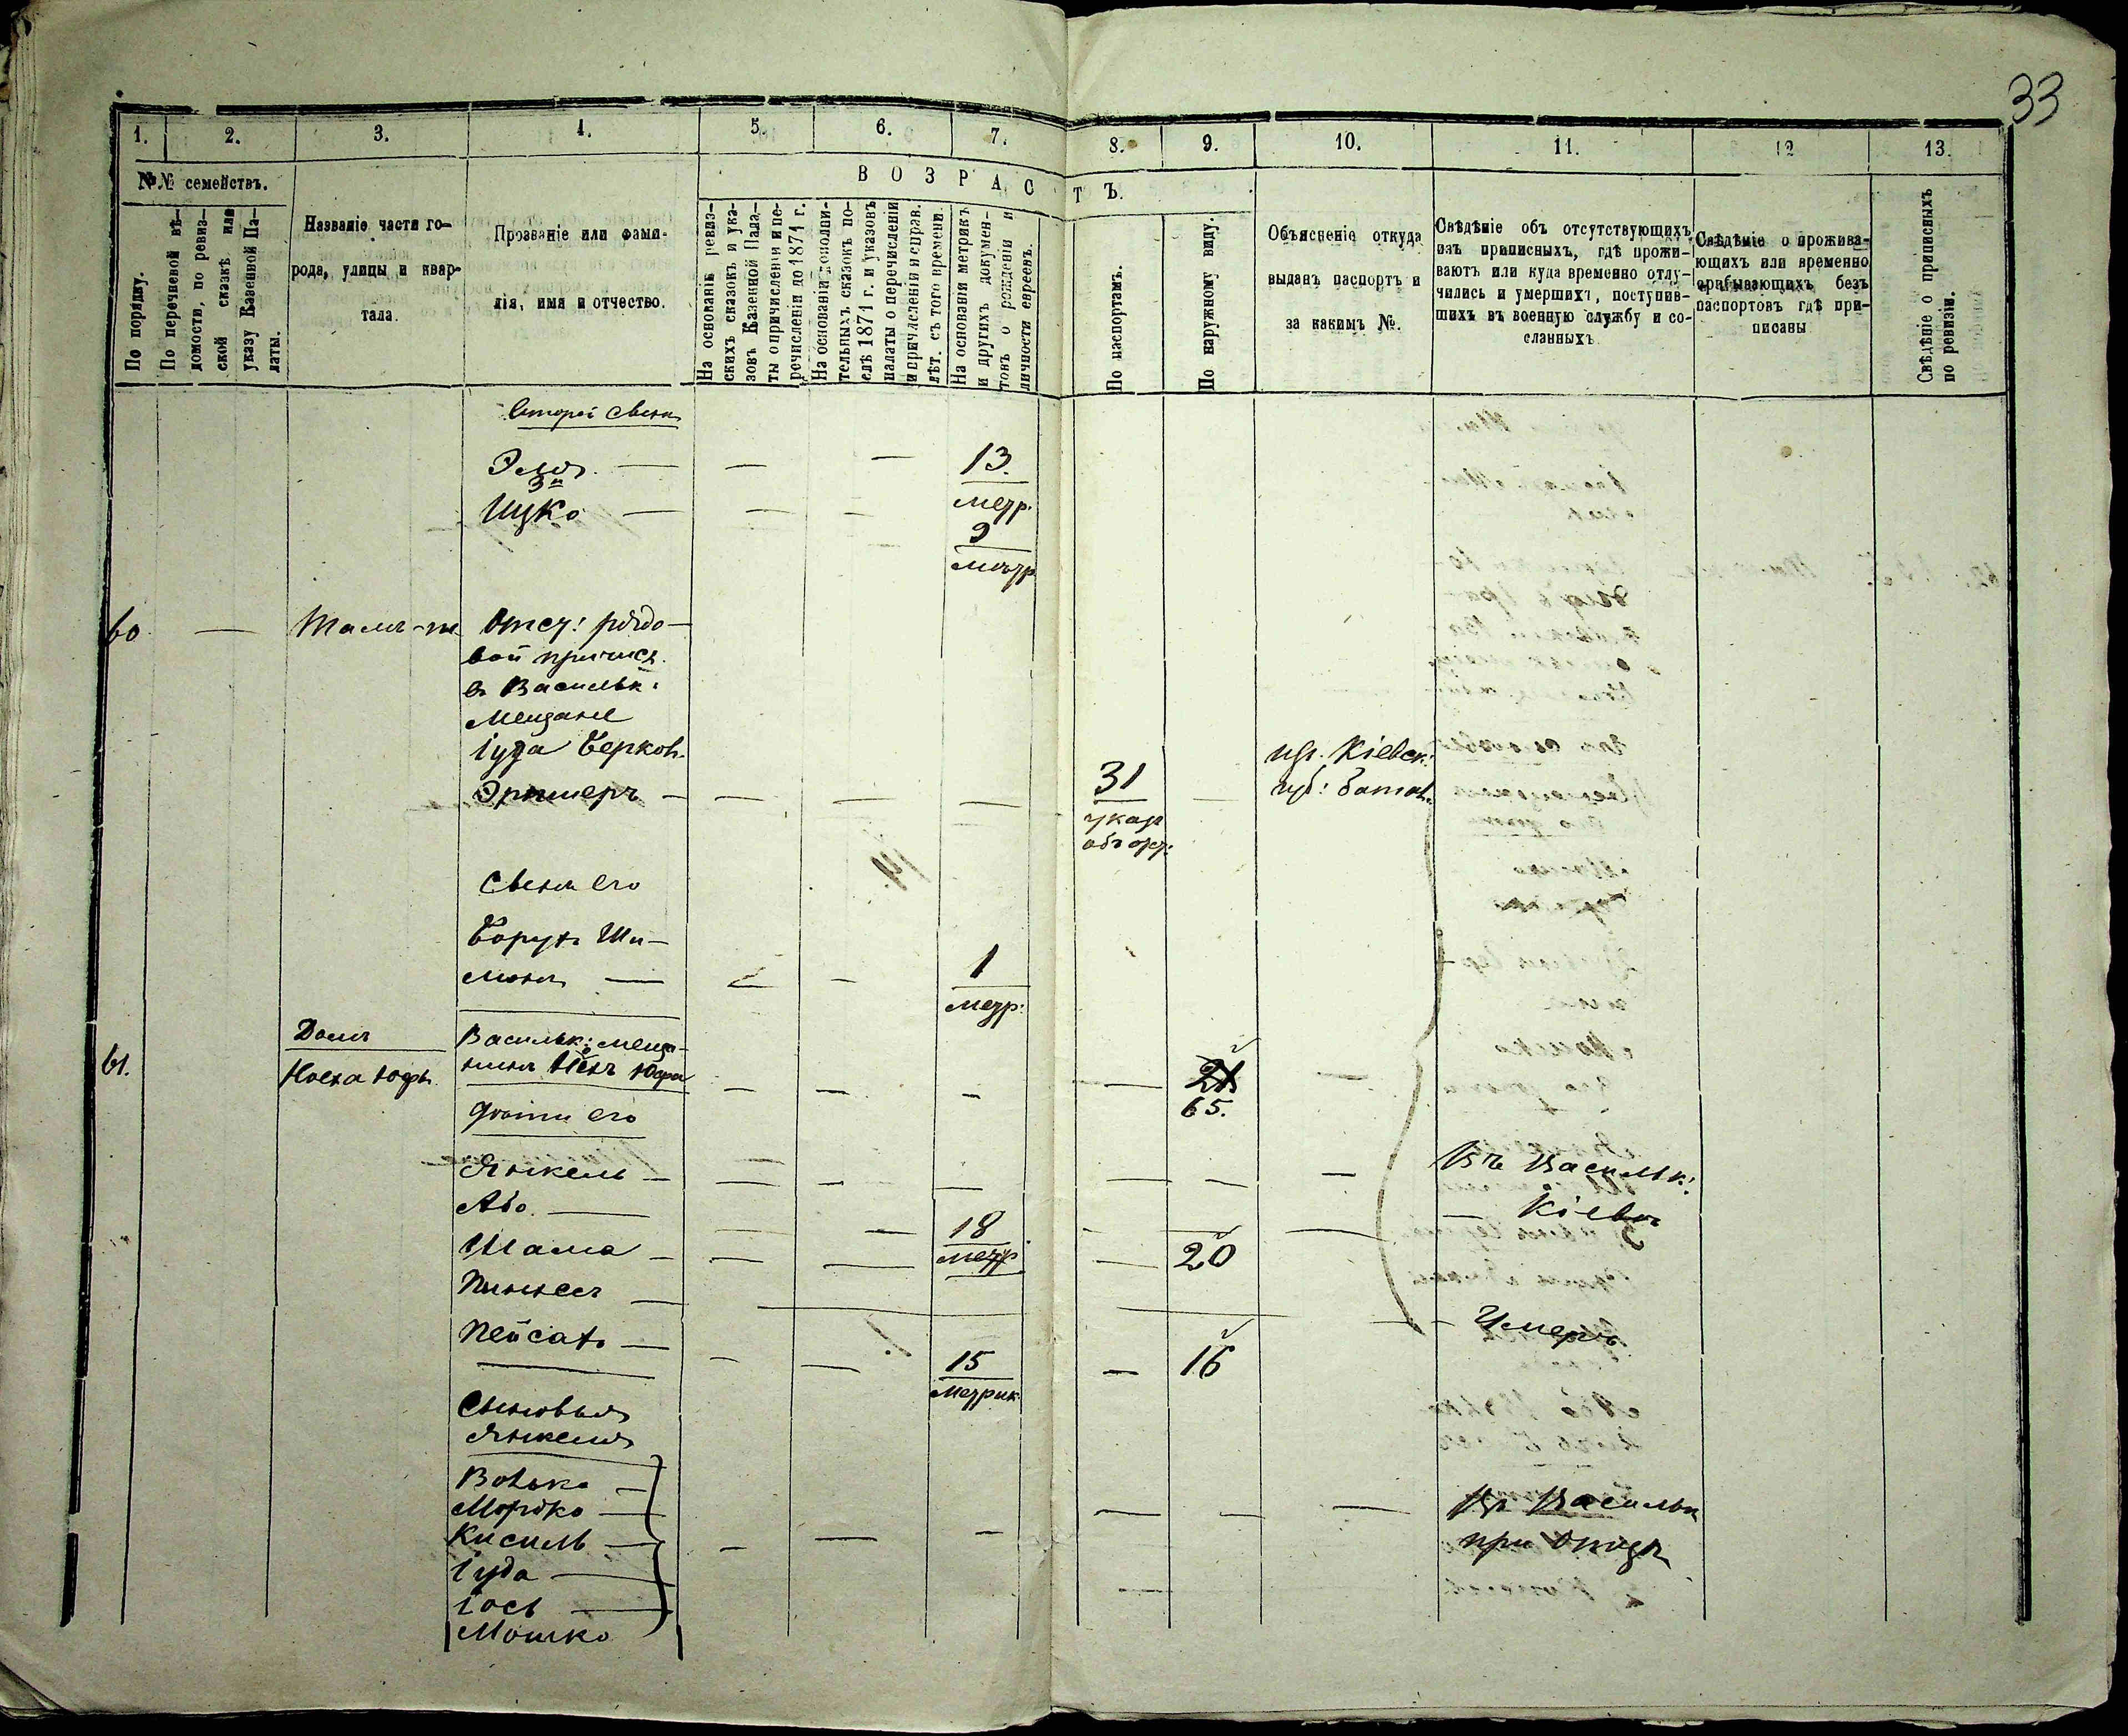 33
1.
2.
3.
4.
5.
6.
7.
8.
9.
10.
11.
12
13.
№№ семействъ.
По порядку.
По перечневой вѣ-
домости, по ревиз-
ской сказкѣ или
указу Казенной Па-
латы.
Названіе части го-
рода, улицы и квар-
тала.
Прозваніе или фами-
лія, имя и отчество.
ВОЗРАСТЪ.
На основаніи ревиз-
скихъ сказокъ и ука-
зовъ Казенной Пала-
ты о причисленіи и пе-
речисленіи до 1871 г.
На основаніи дополни-
тельныхъ сказокъ по-
слѣ 1871 г. и указовъ
палаты о перечисленіи
и причисленіи и справ.
лѣт. съ того времени.
На основаніи метрикъ
и другихъ докумен-
товъ о рожденіи и
личности евреевъ.
По паспортамъ.
По наружному виду.
Объясненіе откуда
выданъ паспортъ и
за какимъ №.
Свѣдѣніе объ отсутствующихъ
изъ приписныхъ, гдѣ прожи-
ваютъ или куда временно отлу-
чились и умершихъ, поступив-
шихъ въ военную службу и со-
сланныхъ
Свѣдѣніе о прожива-
ющихъ или временно
прибывающихъ безъ
паспортовъ гдѣ при-
писаны
Свѣдѣніе о приписныхъ
по ревизіи.
13.
метр.
3й
Ицко
9
метр
60
Отст: рядо-
вой причисл.
в Васильк:
Мещане
Іуда Берков.
31
указ
Кіевск:
губ: батал.
Борух Ши-
мон
1
метр:
61.
Домъ
Васильк: меща-
нинъ
65.
дѣти его
Янкель
Въ Васильк:
Або
18
метр
Кіевѣ
Шама
20
Пинхес
Умеръ
Пейсах
15
метрик
16
Сыновья
Янкеля
Волько
Мордко
Кисиль
Іуда
Іось
Мошко
Въ Васильк
при отцѣ